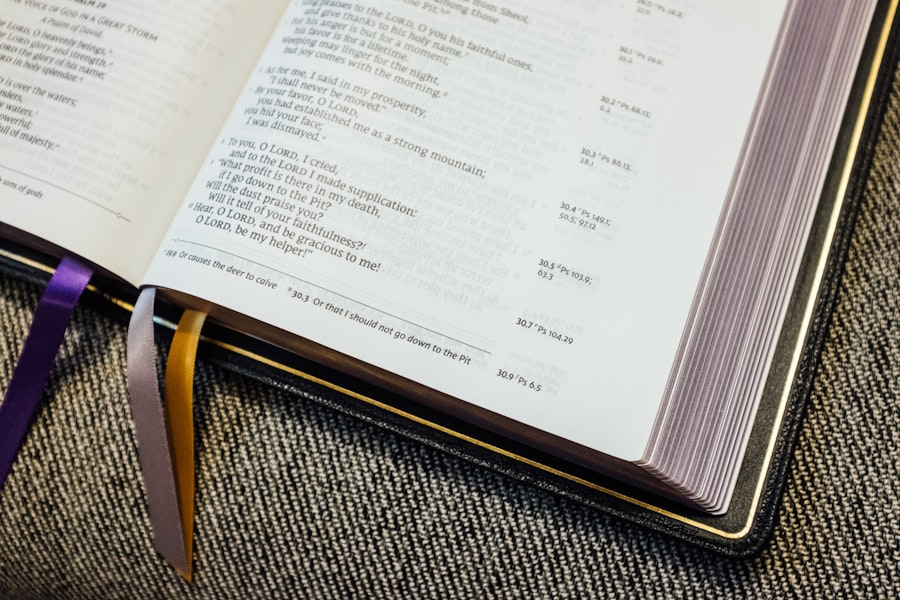 ALM 29
VOICE OF GOD IN A GREAT STORM
A Psalm of David.
LORD, O heavenly beings,
LORD glory and strength.
the glory of his name;
in holy splendor.
is over the waters;
waters.
of majesty.
sons of gods
from Sheol,
among those
the Pit.
praises to the LORD, O you his faithful ones,
and give thanks to his holy name.
For his anger is but for a moment;
his favor is for a lifetime.
Weeping may linger for the night,
but joy comes with the morning.
As for me, I said in my prosperity,
"I shall never be moved."
By your favor, O LORD,
you had established me as a strong mountain;
you hid your face;
I was dismayed.
To you, O LORD, I cried,
and to the LORD I made supplication:
"What profit is there in my death,
if I go down to the Pit?
Will the dust praise you?
Will it tell of your faithfulness?
Hear, O LORD, and be gracious to me!
O LORD, be my helper!"
29.9 Or causes the deer to calve   30.3 Or that I should not go down to the Pit
30.2 Ps 88.13;
6.2
30.3 Ps 86.13;
28.1
30.4 Ps 149.1;
50.5; 97.12
30.5 Ps 103.9;
63.3
30.7 Ps 104.29
30.9 Ps 6.5